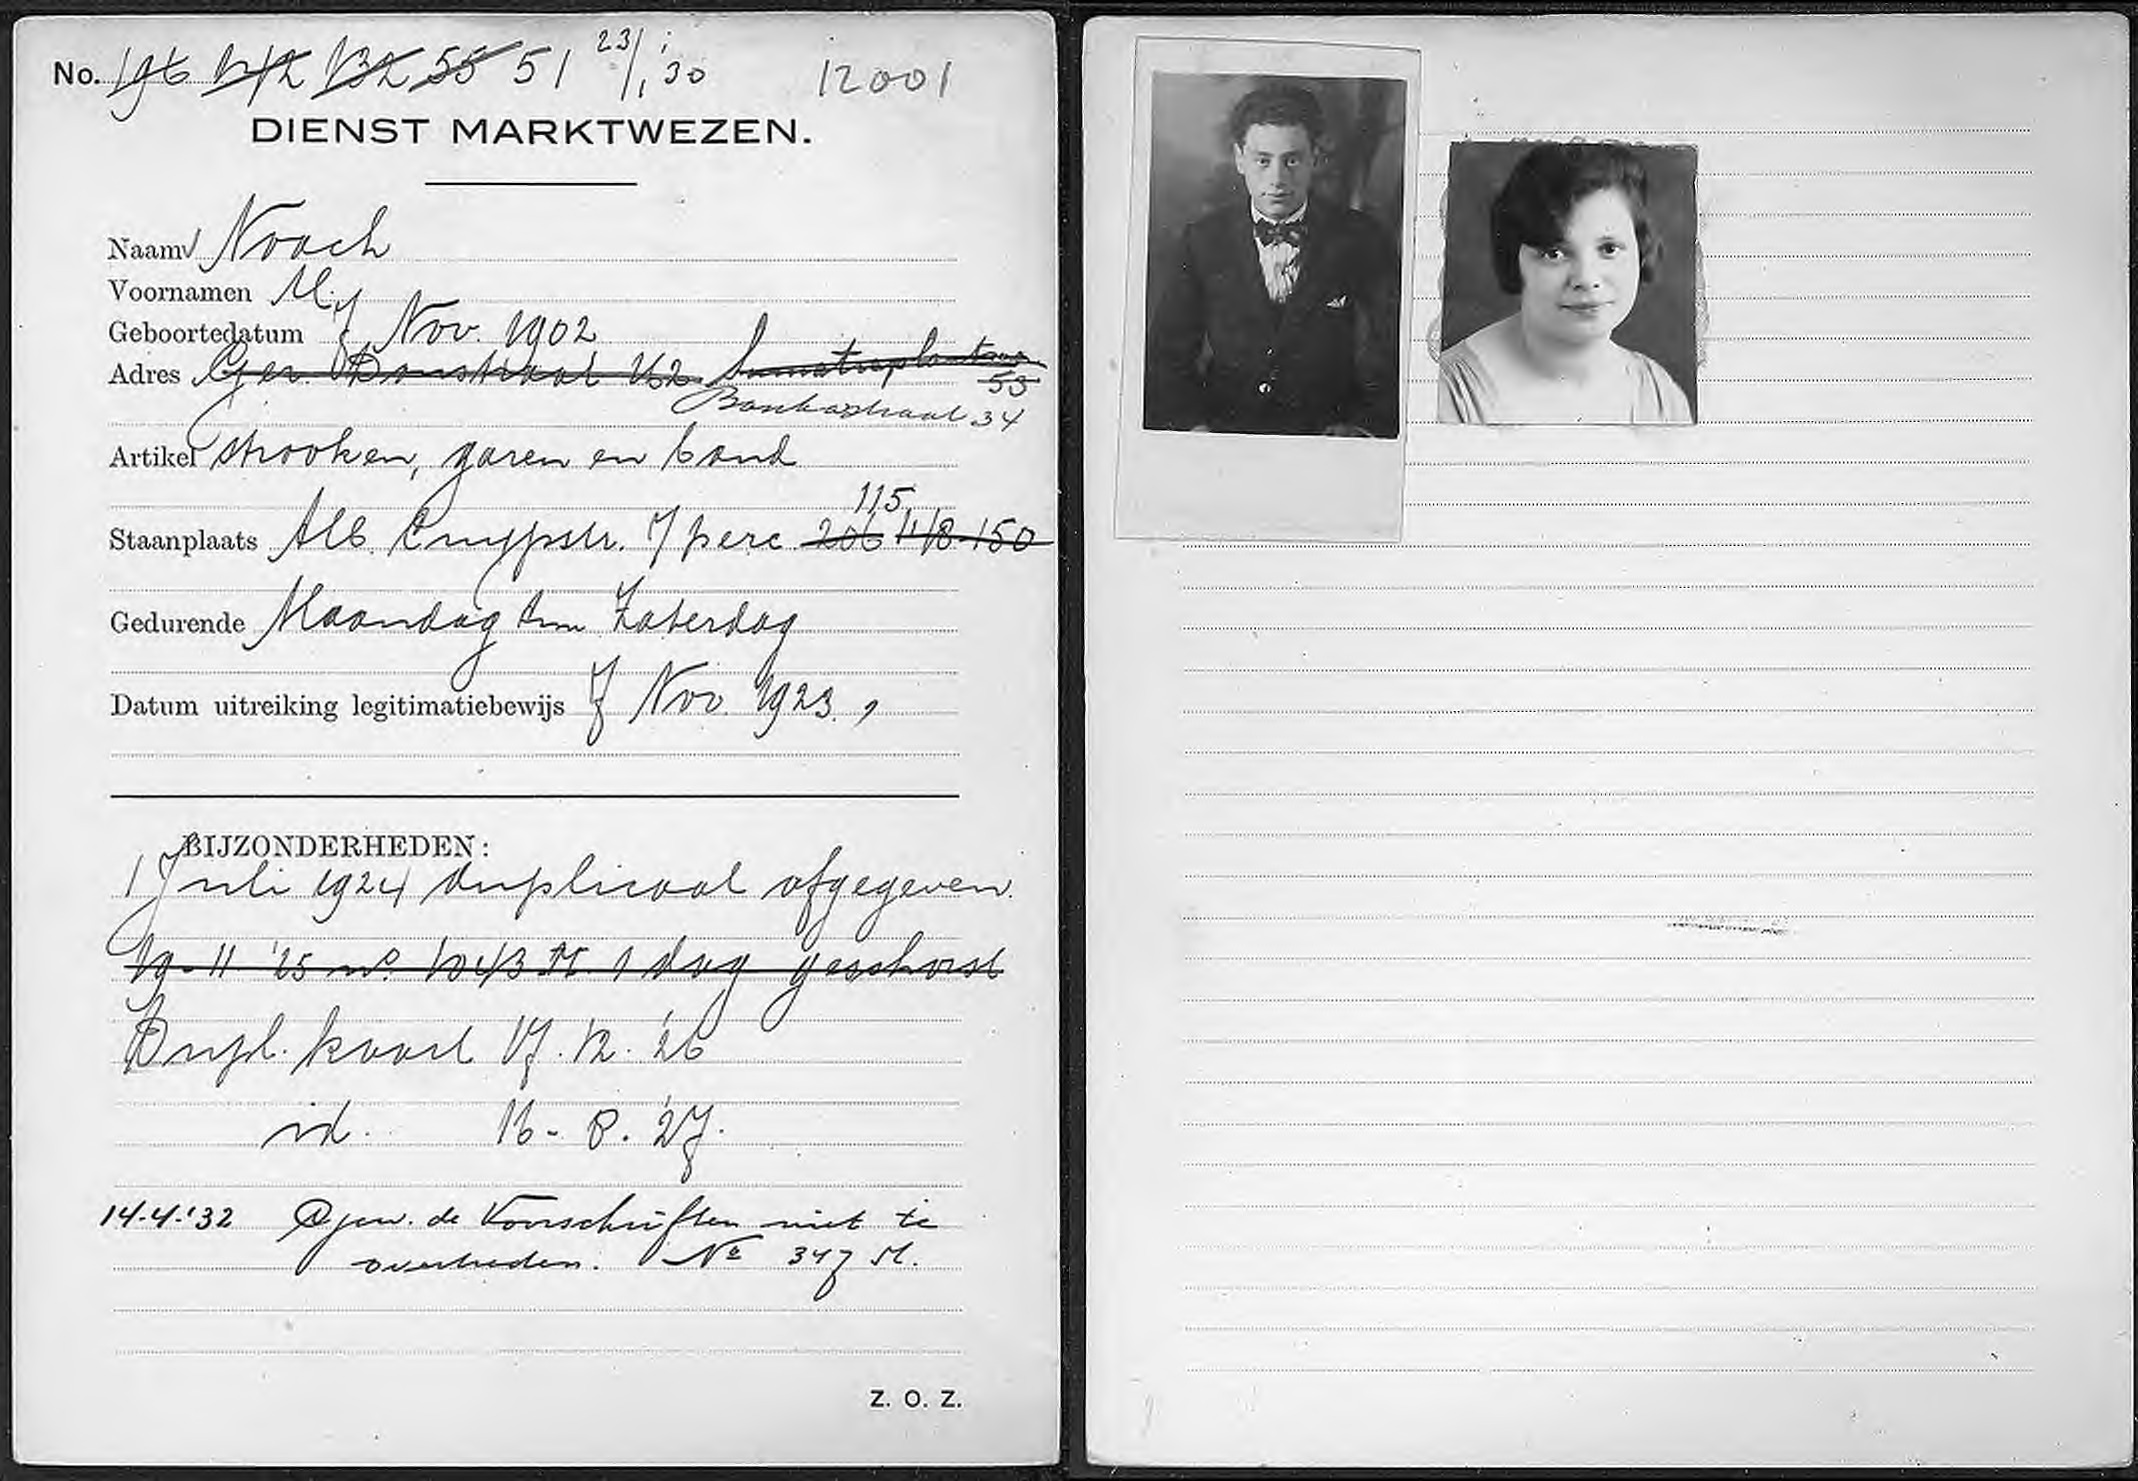 No. 196 1242 132 55 51 23/1 30 12001
DIENST MARKTWEZEN.
Naam Noach
Voornamen M.
Geboortedatum 7 Nov. 1902
Adres Ger. Doustraat 162 Sumatraplantsoen
53
Bankastraat 34
Artikel strooken, garen en band
115
Staanplaats Alb. Cuypstr. 7 perc 206 118 150
Gedurende Maandag t/m Zaterdag
Datum uitreiking legitimatiebewijs 7 Nov. 1923.
BIJZONDERHEDEN:
1 Juli 1924 duplicaat afgegeven.
19-11 '25 no. 1043 M. 1 dag geschorst
Dupl. kaart 17.12.'26
id. 16-8.'27.
14-4-'32 Gew. de Voorschriften niet te
overtreden. No 347 M.
Z. O. Z.